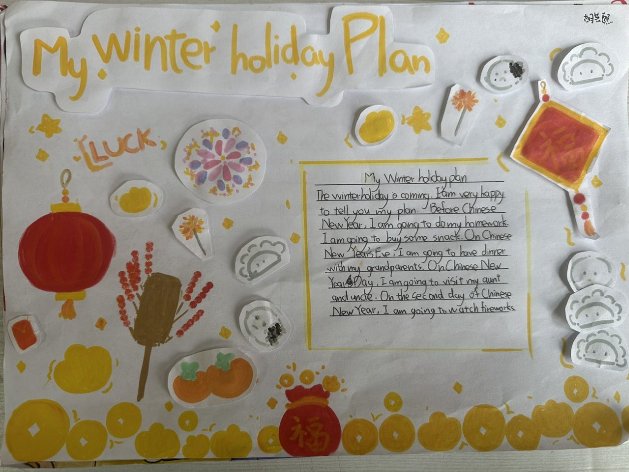 My winter holiday Plan
LUCK
My Winter holiday plan
The winter holiday is coming. I am very happy
to tell you my plan. Before Chinese
New Year, I am going to do my homework.
I am going to buy some snack. On Chinese
New Year's Eve, I am going to have dinner
with my grandparents. On Chinese New
Year Day, I am going to visit my aunt
and uncle. On the second day of Chinese
New Year, I am going to watch fireworks.
福